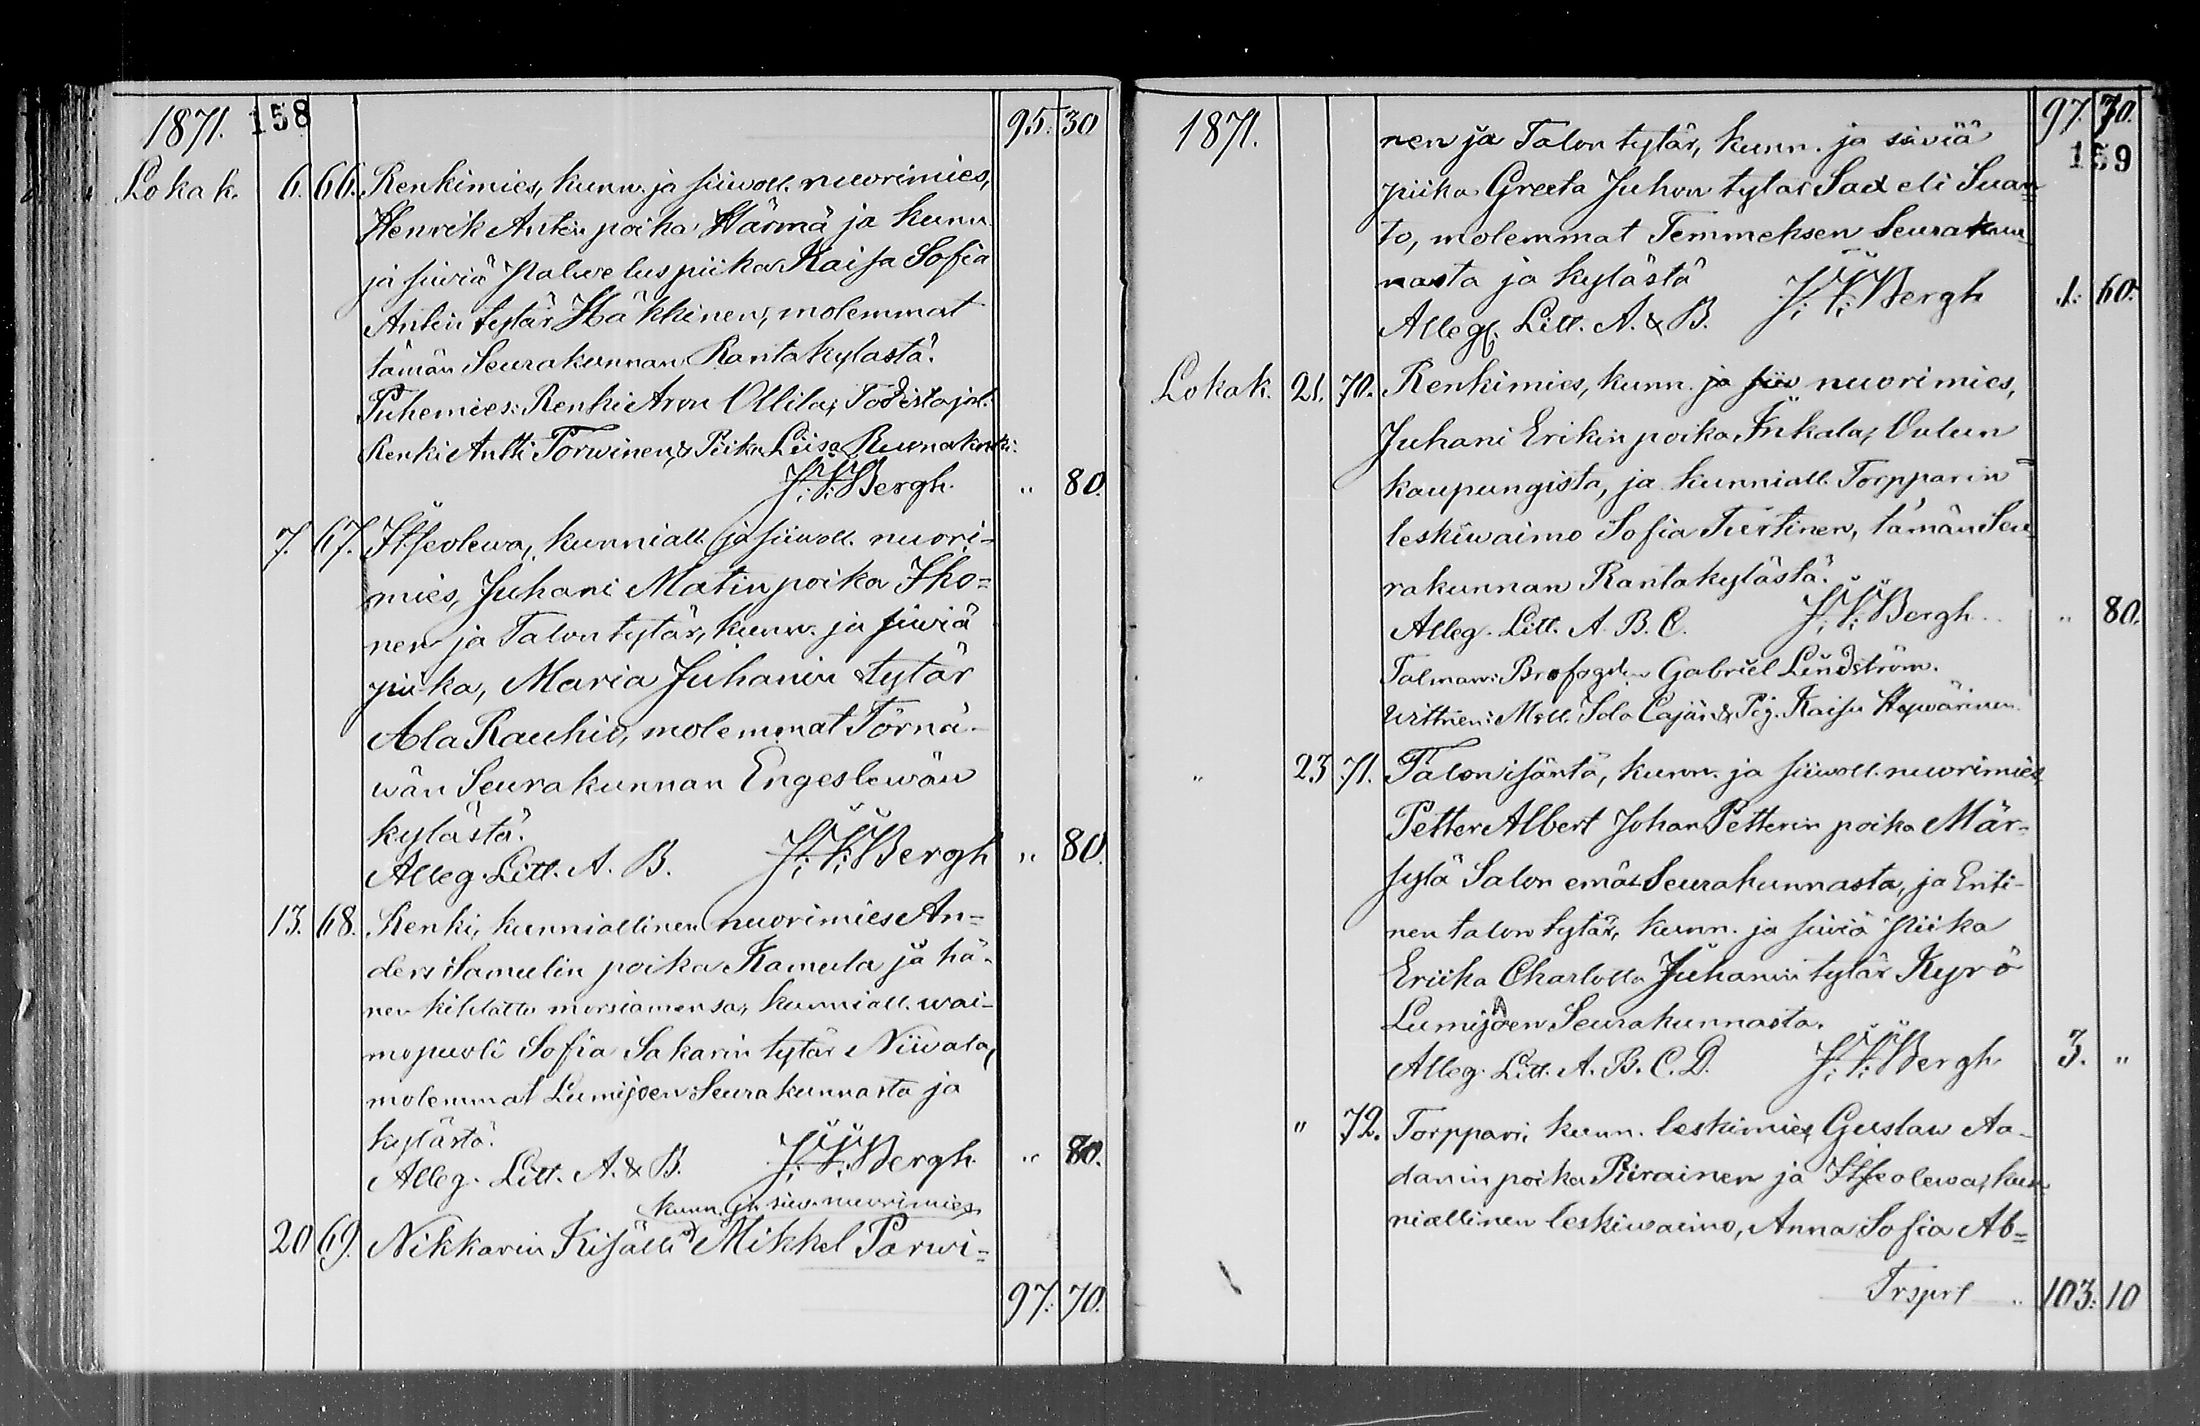 1871. 158 95. 30
Lokak. 6. 66. Renkimies, kunn. ja siiwoll. nuorimies,
Henrik Antin poika Härmä ja kunn.
ja siiwiä Palwelus piika Kaisa Sofia
Antin tytär Häkkinen, molemmat
tämän Seurakunnan Rantakylästä.
Puhemies: Renki Aron Ollila; Todistajat:
Renki Antti Torwinen, & Piika Liisa
J. W. Bergh. " 80.
7. 67. Itsseolewa, kunniall. ja siiwoll. nuori-
mies, Juhani Matin poika Iko=
nen ja Talon tytär, kunn. ja siiwiä
piika, Maria Juhanin tytär
Ala Rauhio, molemmat Törnä-
wän Seurakunnan Engeslewän
kylästä.
Alleg. Litt. A. B. J. W. Bergh " 80.
13. 68. Renki, kunniallinen nuorimies An=
ders Samulin poika Kamula ja hä-
nen kihlattu morsiamensa, kunniall. wai-
mopuoli Sofia Sakarin tytär Niiwala,
molemmat Lumijoen Seurakunnasta ja
kylästä.
Alleg. Litt. A. & B. J. W. Bergh. " 80.
kunn. ja siiw. nuorimies
20 69. Nikkarin Kisälli Mikkel Parwi=
97. 70.
1871. 97. 70.
159
nen ja Talon tytär, kunn. ja siiviä
piika Greeta Juhon tytar Sad eli Suan=
to, molemmat Temmeksen Seurakun=
nasta ja kylästä
Alleg. Litt. A. & B. J. W. Bergh 1. 60.
Lokak. 21. 70. Renkimies, kunn. ja siiv nuorimies,
Juhani Erikin poika Inkala, Oulun
kaupungista, ja kunniall. Torpparin
leskiwaimo Sofia Tiertinen, tämän Seu=
rakunnan Rantakylästä.
Alleg. Litt. A. B. C. J. W. Bergh. " 80.
Talman: Brofogden Gabriel Lindström.
Wittnen: Mll. Sofa Cajan & Pig. Kaisa
" 23 71. Talon isäntä, kunn. ja siiwoll. nuorimies,
Petter Albert Johan Petterin poika Mär-
sylä Salon emä Seurakunnasta, ja Enti-
nen talon tytär, kunn. ja siiviä Piika
Eriika Charlotta Juhanin tytär Kyrö
Lumijoen Seurakunnasta.
Alleg. Litt. A. B. C. D. J. W. Bergh. 3. "
" 72. Torppari, kunn. leskimies Gustaw Aa-
danin poika Piirainen ja Itsseolewa, kun
niallinen leskiwaimo, Anna Sofia Ab=
Trsprt " 103. 10